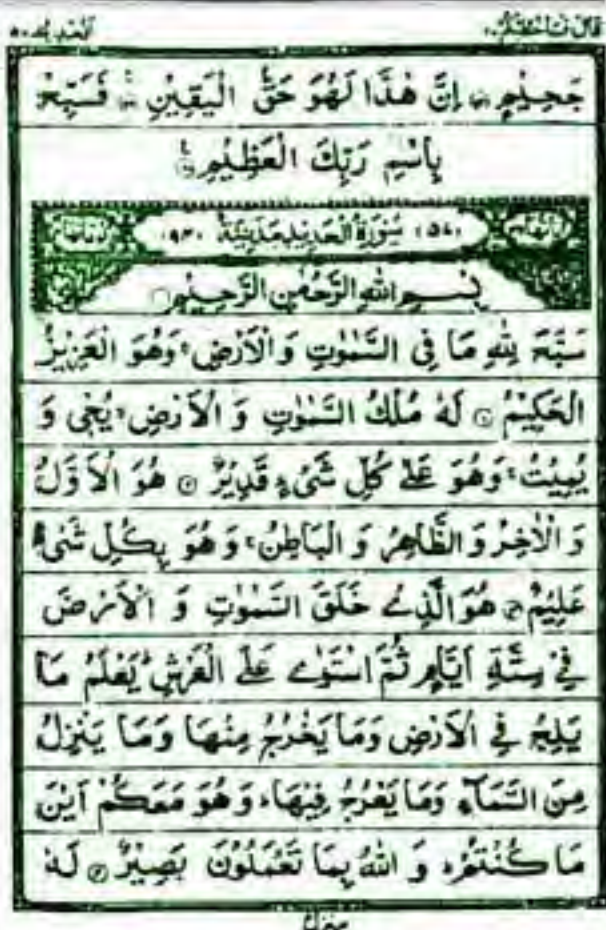 قال فما خطبكم
الحديد ٥٧
جَحِيْمٍ ﴿٩٤﴾ اِنَّ هٰذَا لَهُوَ حَقُّ الْيَقِيْنِ ﴿٩٥﴾ فَسَبِّحْ
بِاسْمِ رَبِّكَ الْعَظِيْمِ ﴿٩٦﴾
سُوْرَةُ الْحَدِيْدِ مَدَنِيَّةٌ
بِسْمِ اللهِ الرَّحْمٰنِ الرَّحِيْمِ
سَبَّحَ لِلّٰهِ مَا فِى السَّمٰوٰتِ وَ الْاَرْضِ ۚ وَهُوَ الْعَزِيْزُ
الْحَكِيْمُ ﴿١﴾ لَهٗ مُلْكُ السَّمٰوٰتِ وَ الْاَرْضِ ۚ يُحْىٖ وَ
يُمِيْتُ ۚ وَهُوَ عَلٰى كُلِّ شَىْءٍ قَدِيْرٌ ﴿٢﴾ هُوَ الْاَوَّلُ
وَ الْاٰخِرُ وَ الظَّاهِرُ وَ الْبَاطِنُ ۚ وَ هُوَ بِكُلِّ شَىْءٍ
عَلِيْمٌ ﴿٣﴾ هُوَ الَّذِىْ خَلَقَ السَّمٰوٰتِ وَ الْاَرْضَ
فِىْ سِتَّةِ اَيَّامٍ ثُمَّ اسْتَوٰى عَلَى الْعَرْشِ ؕ يَعْلَمُ مَا
يَلِجُ فِى الْاَرْضِ وَمَا يَخْرُجُ مِنْهَا وَمَا يَنْزِلُ
مِنَ السَّمَآءِ وَمَا يَعْرُجُ فِيْهَا ؕ وَ هُوَ مَعَكُمْ اَيْنَ
مَا كُنْتُمْ ؕ وَ اللهُ بِمَا تَعْمَلُوْنَ بَصِيْرٌ ﴿٤﴾ لَهٗ
منزل